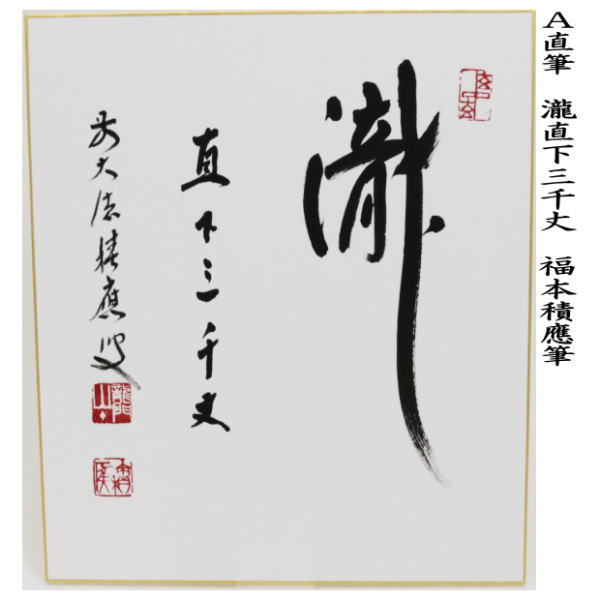 A直筆 瀧直下三千丈 福本積應筆
瀧
直下三千丈
前大徳積應叟
龍山